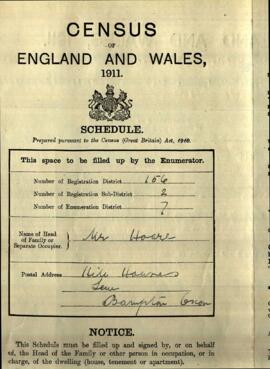 CENSUS
OF
ENGLAND AND WALES,
1911.
SCHEDULE.
Prepared pursuant to the Census (Great Britain) Act, 1910.
This space to be filled up by the Enumerator.
Number of Registration District 156
Number of Registration Sub-District 2
Number of Enumeration District 7
Name of Head
of Family or
Separate Occupier.
Mr Hoare
Postal Address
Bampton Oxon
NOTICE.
This Schedule must be filled up and signed by, or on behalf
of, the Head of the Family or other person in occupation, or in
charge, of the dwelling (house, tenement or apartment).